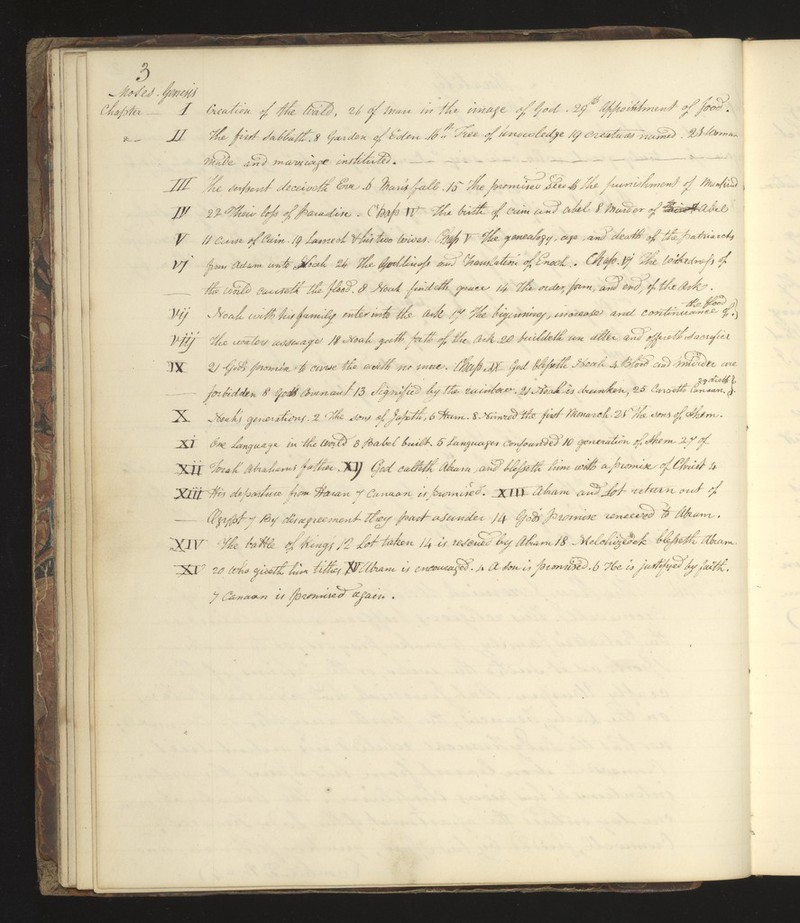 3
Moses. Genesis
Chapter — I Creation of the World, 26 of man in the image of God. 29th Appointment of food.
II The first Sabbath. 8 Garden of Eden 16th Tree of knowledge 19 creatures named. 25 Woman
made and marriage instituted.
III The serpent deceiveth Eve. 6 Man's fall. 15 The promised seed 16 The punishment of Mankind
IV 22 Their loss of Paradise. Chap IV The birth of Cain and Abel 8 Murder of Abel
V 11 Curse of Cain. 19 Lamech & his two wives. Chap V The genealogy, age, and death of the patriarchs
VJ from Adam unto Noah 24 The Godliness and Translation of Enoch. Chap. VJ The wickedness of
the world causeth the flood. 8 Noah findeth grace 14 The order, form, and end, of the Ark.
VIJ Noah with his family enter into the ark 17 The beginning, increase and continuance of the flood.
VIIJ The waters asswage 18 Noah goeth forth of the Ark 20 buildeth an alter and offereth sacrifice
IX 21 God's promise to curse the earth no more. Chap IX God blesseth Noah 4 Blood and murder are
forbidden 8 God's Covenant 13 Signified by the rainbow. 21 Noah is drunken, 25 Curseth Canaan, 29 dieth.
X Noah's generations. 2 The sons of Japheth, 6 Ham. 8. Nimrod the first Monarch. 21 The sons of Shem.
XI One Language in the World 3 Babel built. 5 Languages confounded 10 generation of Shem 27 of
XII Terah Abrahams father. XIJ God calleth Abram, and blesseth him with a promise of Christ 4
XIII His departure from Haran 7 Canaan is promised. XIII Abram and Lot return out of
Egypt 7 By disagreement they part asunder 14 God's promise renewed to Abram.
XIV The battle of Kings 12 Lot taken 14 is rescued by Abram 18 Melchizedek blesseth Abram
XV 20 Who giveth him tithes. XV Abram is encouraged. 4 A son is promised. 6 He is justifyed by faith.
7 Canaan is promised again.